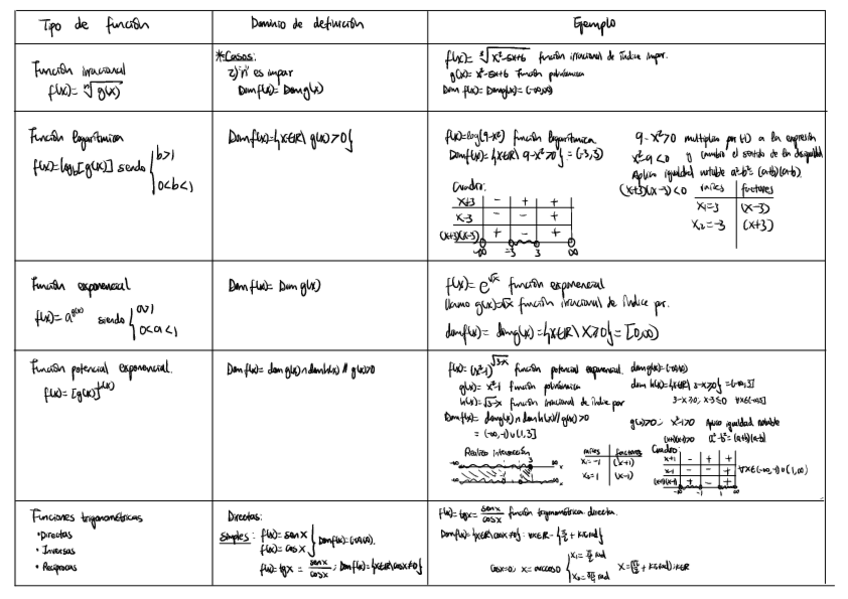 Tipo de función
Dominio de definición
Ejemplo
Función irracional
f(x)= ⁿ√g(x)
*Casos:
2) "n" es impar
Dom f(x)= Dom g(x)
f(x)= √x²-5x+6 función irracional de índice impar.
g(x)= x²-5x+6 función polinómica
Dom f(x)= Dom g(x)= (-∞,∞)
Función logarítmica
f(x)=log_b[g(x)] siendo { b>1
0<b<1
Dom f(x)={x∈ℝ \ g(x)>0}
f(x)=log(9-x²) función logarítmica
Dom f(x)={x∈ℝ \ 9-x²>0} = (-3,3)
Cuadro:
x+3 - + +
x-3 - - +
(x+3)(x-3) + - +
-∞ -3 3 ∞
9-x²>0 multiplico por (-1) a la expresión
x²-9<0 y cambio el sentido de la desigualdad
Aplico igualdad notable a²-b²= (a+b)(a-b).
(x+3)(x-3)<0
raíces factores
x₁=3 (x-3)
x₂=-3 (x+3)
Función exponencial
f(x)= a^g(x) siendo { a>1
0<a<1
Dom f(x)= Dom g(x)
f(x)= e^√x función exponencial
llamo g(x)=√x función irracional de índice par.
dom f(x)= dom g(x)={x∈ℝ \ x≥0}= [0,∞)
Función potencial exponencial.
f(x)= [g(x)]^h(x)
Dom f(x)= dom g(x)∩dom h(x) // g(x)>0
f(x)= (x²-1)^√3-x función potencial exponencial.
g(x)= x²-1 función polinómica
h(x)=√3-x función irracional de índice par
Dom f(x)= dom g(x)∩dom h(x) // g(x)>0
= (-∞,-1)∪(1,3]
dom g(x)=(-∞,∞)
dom h(x)={x∈ℝ \ 3-x≥0}=(-∞,3]
3-x≥0; x-3≤0 ∀x∈(-∞,3]
g(x)>0; x²-1>0 Aplico igualdad notable
(x+1)(x-1)>0 a²-b²=(a+b)(a-b)
Realizo intersección
raíces factores
x₁=-1 (x+1)
x₂=1 (x-1)
Cuadro
x+1 - + +
x-1 - - +
(x+1)(x-1) + - +
-∞ -1 1 ∞
∀x∈(-∞,-1)∪(1,∞)
Funciones trigonométricas
•Directas
• Inversas
• Recíprocas
Directas:
Simples: f(x)= sen x
f(x)= cos x } Dom f(x)=(-∞,∞).
f(x)= tg x = sen x / cos x ; Dom f(x)={x∈ℝ\cos x≠0}
f(x)= tg x= sen x / cos x función trigonométrica directa.
cos x=0; x= arccos 0 { x₁= π/2 rad
x₂= 3π/2 rad